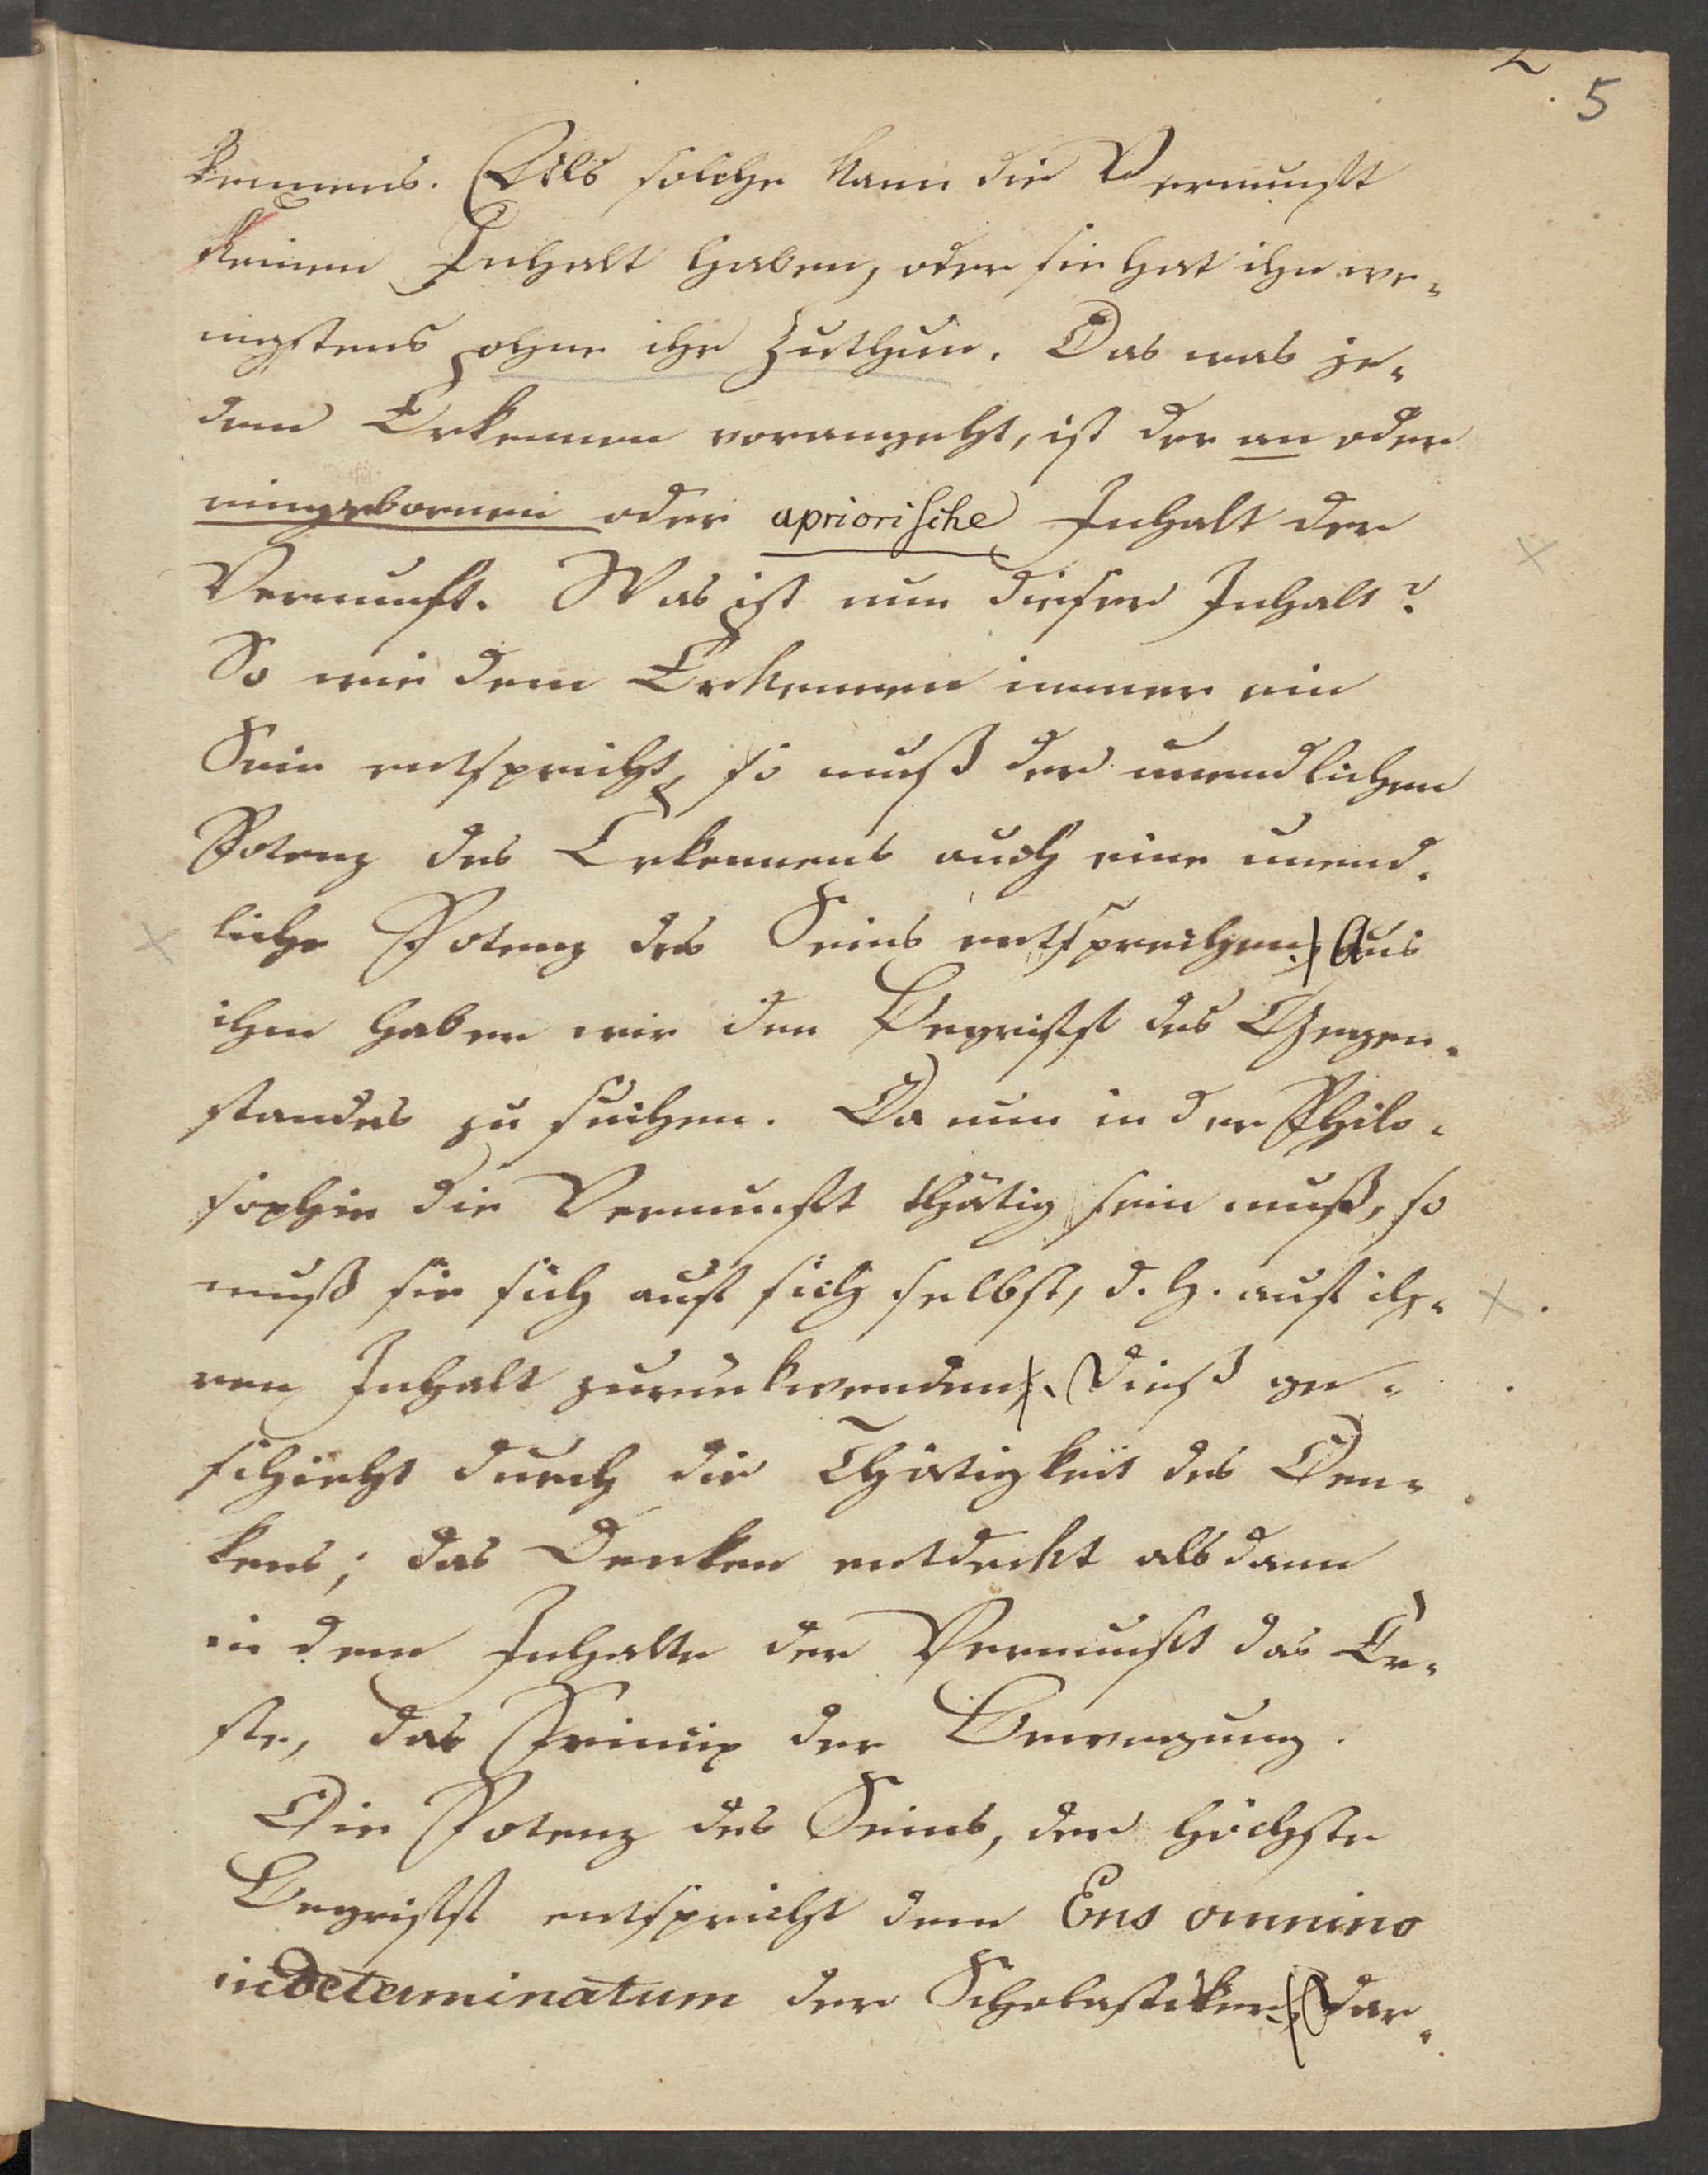 5
kennens. Als solche kann die Vernunft
keinen Inhalt haben, oder sie hat ihn we-
nigstens ohne ihr Zuthun. Das was je-
dem Erkennen vorangeht, ist der an oder
eingebornen oder apriorische Inhalt der
Vernunft. Was ist nun dieser Inhalt?
So wie dem Erkennen immer ein
Sein entspricht, so muß der unendlichen
Potenz des Erkennens auch eine unend-
liche Potenz des Seins entsprechen. Aus
ihm haben wir den Begrifff des Gegen-
standes zu suchen. Da nun in der Philo-
sophie die Vernunft thätig sein muß, so
muß sie sich auf sich selbst, d. h. auf ih-
ren Inhalt zurükwenden. Dieß ge-
schieht durch die Thätigkeit des Den-
kens; das Denken entdekt alsdann
in dem Inhalte der Vernunft das Er-
ste, das Princip der Bewegung.
Die Potenz des Seins, der höchste
Begriff entspricht dem Ens omnino
indeterminatum der Scholastiker. Dar-